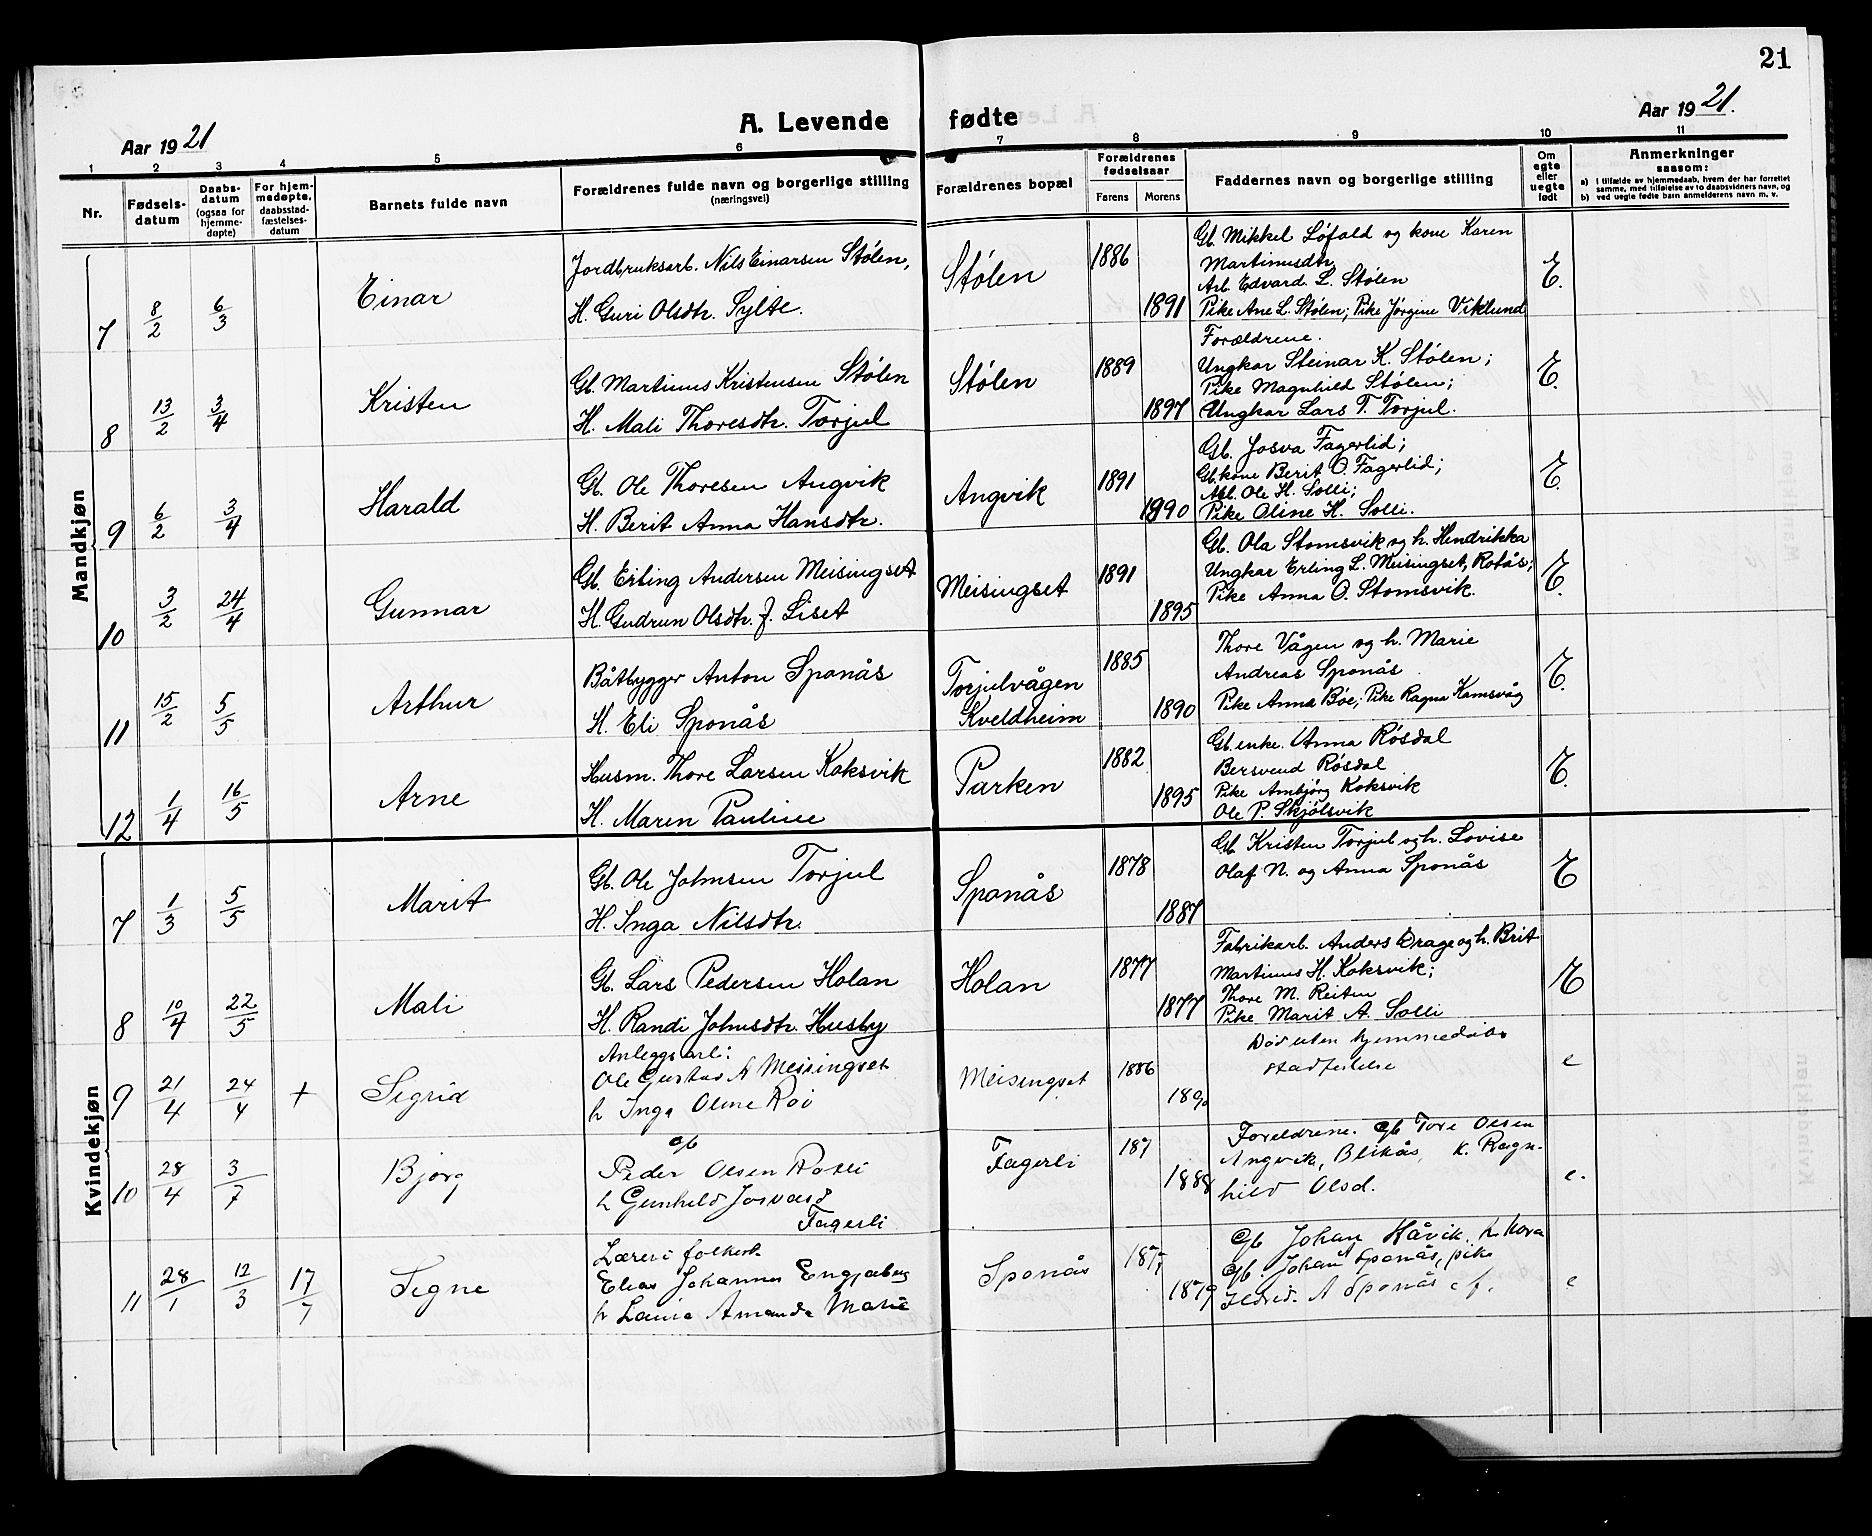 21
Aar 1921
A. Levende fødte
Aar 1921.
1 2 3 4 5 6 7 8 9 10 11
Nr.
Fødsels-
datum
Daabs-
datum
(ogsaa for
hjemme-
døpte)
For hjem-
medøpte,
daabsstad-
fæstelses-
datum
Barnets fulde navn
Forældrenes fulde navn og borgerlige stilling
(næringsvei)
Forældrenes bopæl
Forældrenes
fødselsaar
Farens Morens
Faddernes navn og borgerlige stilling
Om
egte
eller
uegte
født
Anmerkninger
saasom:
a) i tilfælde av hjemmedaab, hvem der har forrettet
samme, med tilføielse av to daabsvidners navn, og
b) ved uegte fødte barn anmelderens navn m. v.
Mandkjøn
7 8/2 6/3 Einar
Jordbruksarb. Nils Einarsen Stølen,
H. Guri Olsdtr. Sylte.
Stølen 1886 1891
Gb. Mikkel Løfald og kone Karen
Martinusdtr
Arb. Edvard L. Stølen
Pike Ane L. Stølen; Pike Jørgine Viklund
E.
8 13/2 3/4 Kristen
Gb. Martinus Kristensen Stølen
H. Mali Thoresdtr. Torjul
Stølen 1889 1897
Forældrene.
Ungkar Steinar K. Stølen;
Pike Magnhild Stølen;
Ungkar Lars T. Torjul.
E.
9 6/2 3/4 Harald
Gb. Ole Thoresen Angvik
H. Berit Anna Hansdtr.
Angvik 1891 1890
Gb. Josva Fagerlid;
Gb.kone Berit O. Fagerlid;
Arb. Ole H. Solli;
Pike Oline H. Solli.
E.
10 3/2 24/4 Gunnar
Gb. Erling Andersen Meisingset
H. Gudrun Olsdtr. f. Liset
Meisingset 1891 1895
Gb. Ola Stomsvik og h. Hendrikka
Ungkar Erling L. Meisingset, Rotås;
Pike Anna O. Stomsvik.
E.
11 15/2 5/5 Arthur
Båtbygger Anton Sponås
H. Eli Sponås
Torjulvågen
Kveldheim
1885 1890
Thore Vågen og h. Marie
Andreas Sponås
Pike Anna Bøe; Pike Ragna Kamsvåg
E.
12 1/4 16/5 Arne
Husm. Thore Larsen Koksvik
H. Maren Pauline
Parken 1882 1895
Gb. enke. Anna Røsdal
Bersvend Røsdal
Pike Ambjørg Koksvik
Ole P. Skjølsvik
E.
Kvindekjøn
7 1/3 5/5 Marit
Gb. Ole Johnsen Torjul
H. Inga Nilsdtr.
Sponås 1878 1887
Gb. Kristen Torjul og h. Lovise
Olaf N. og Anna Sponås
E
8 10/4 22/5 Mali
Gb. Lars Pedersen Holan
H. Randi Johnsdtr. Husby
Holan 1877 1877
Fabrikarb. Anders Drage og h. Brit
Martinus H. Koksvik;
Thore M. Reiten
Pike Marit A. Solli
E
9 21/4 24/4 + Sigrid
Anleggsarb:
Ole Gustav A Meisingset
h Inga Oline Roö
Meisingset 1886 1890
Död uten hjemmedåbs
stadfestelse
e
10 28/4 3/7 Bjørg
Gb
Peder Olsen
h Gunhild Josvasd
Fagerli
Fagerli 187 1888
Foreldrene. Gb Tore Olsen
Angvik, Blikås, k. Ragn-
hild Olsd.
e.
11 28/1 12/3 17/7 Signe
Lærer i folkesk
Elias Johannes Engjaberg
h Laura Amanda Marie
Sponås 1877 1879
Gb Johan Håvik, h
Gb. Johan A Sponås, pike
A Sponås
e
Mandkjøn
Kvindekjøn